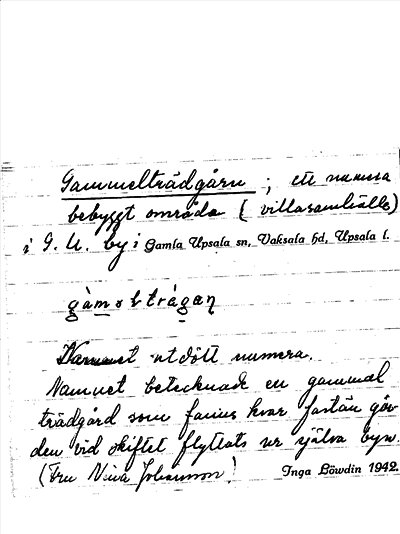 Gammelträdgårn ; ett numera
bebyggt område ( villasamhälle)
i G. U. by i Gamla Upsala sn, Vaksala hd, Upsala l.
Namnet utdött numera.
Namnet betecknade en gammal
trädgård som fanns kvar fastän går-
den vid skiftet flyttats ur själva byn.
(Fru Nina Johansson) Inga Löwdin 1942.